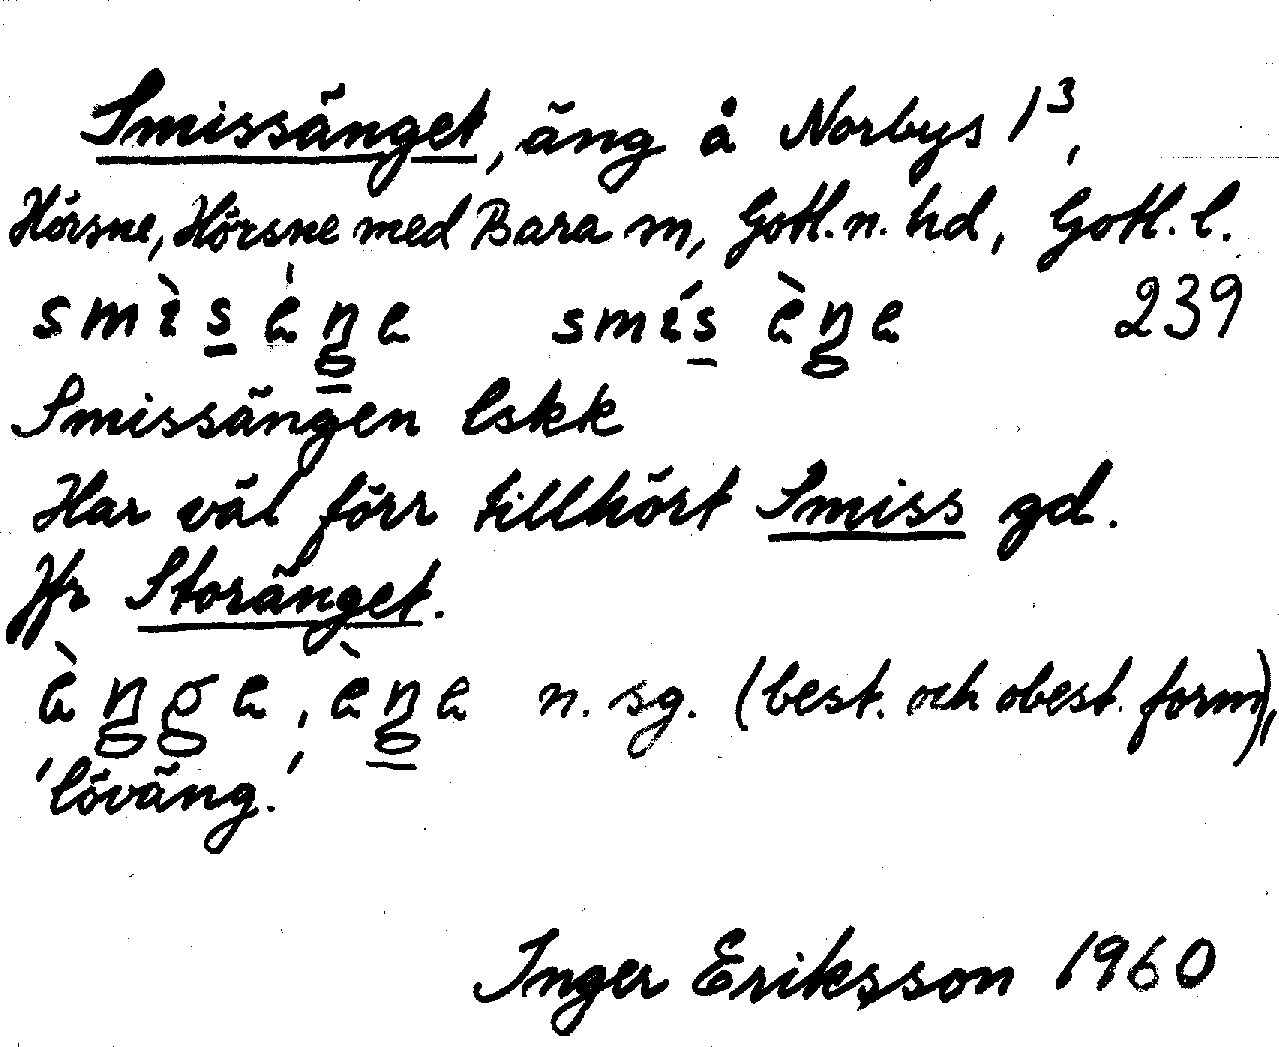 Smissänget, äng å Norbys 1³,
Hörsne, Hörsne med Bara sn, Gotl. n. hd, Gotl. l.
smìs èŋe smís èŋe 239
Smissängen lskk
Har väl förr tillhört Smiss gd.
Jfr Storänget.
èŋge, èŋe n. sg. (best. och obest. form),
'löväng.'
Inger Eriksson 1960